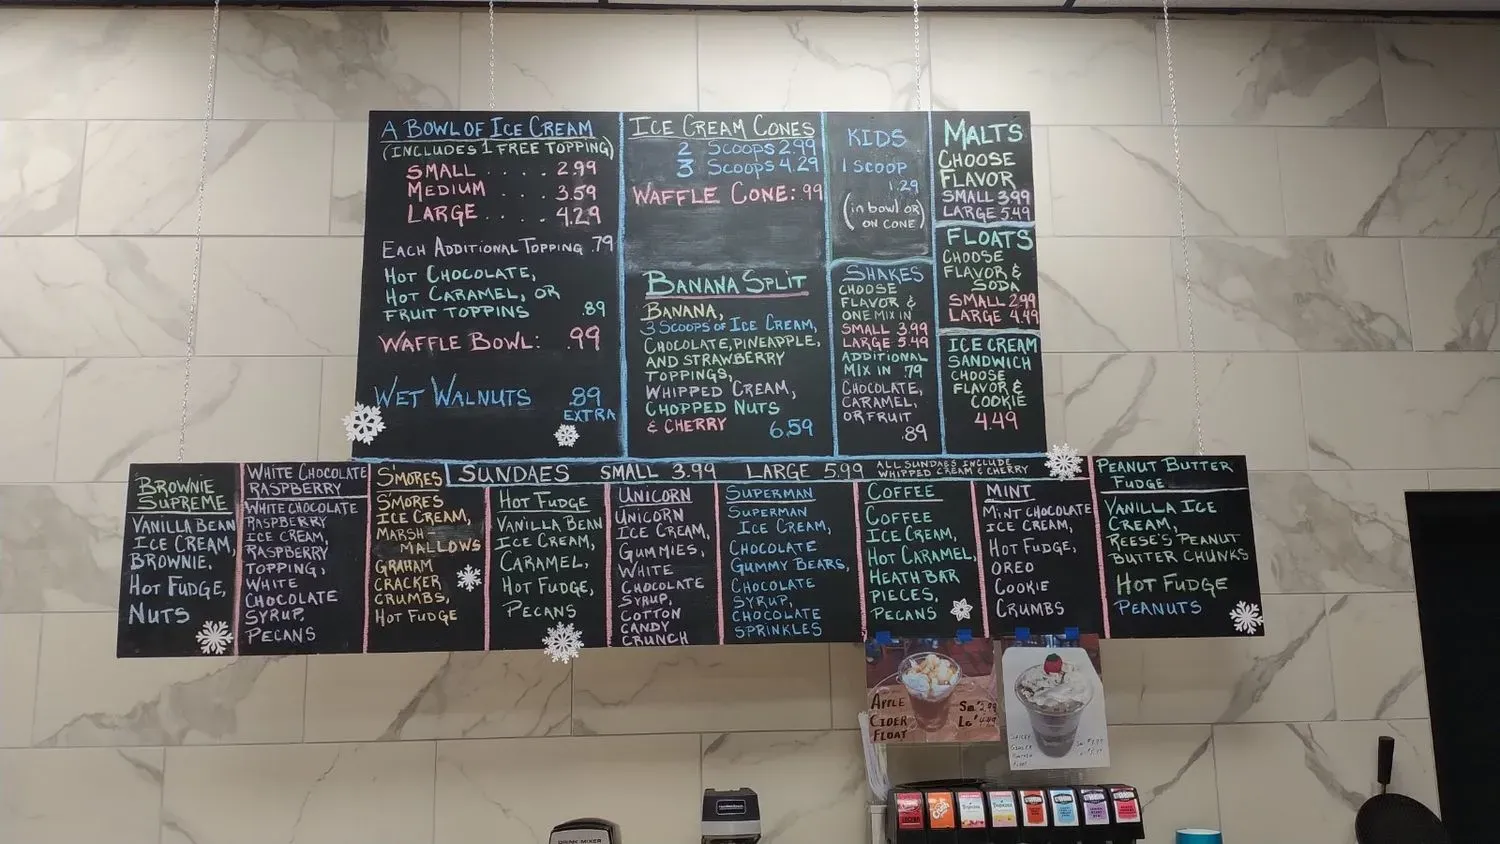 A BOWL OF ICE CREAM
(INCLUDES 1 FREE TOPPING)
SMALL .... 2.99
MEDIUM .... 3.59
LARGE .... 4.29
EACH ADDITIONAL TOPPING .79
HOT CHOCOLATE,
HOT CARAMEL, OR
FRUIT TOPPINS .89
WAFFLE BOWL: .99
WET WALNUTS .89
EXTRA
ICE CREAM CONES
2 SCOOPS 2.99
3 SCOOPS 4.29
WAFFLE CONE: .99
BANANA SPLIT
BANANA,
3 SCOOPS OF ICE CREAM,
CHOCOLATE, PINEAPPLE,
AND STRAWBERRY
TOPPINGS,
WHIPPED CREAM,
CHOPPED NUTS
& CHERRY 6.59
KIDS
1 SCOOP
1.29
(in bowl or
on cone)
SHAKES
CHOOSE
FLAVOR &
ONE MIX IN
SMALL 3.99
LARGE 5.49
ADDITIONAL
MIX IN .79
CHOCOLATE,
CARAMEL,
OR FRUIT
.89
MALTS
CHOOSE
FLAVOR
SMALL 3.99
LARGE 5.49
FLOATS
CHOOSE
FLAVOR &
SODA
SMALL 2.99
LARGE 4.49
ICE CREAM
SANDWICH
CHOOSE
FLAVOR &
COOKIE
4.49
SUNDAES SMALL 3.99 LARGE 5.99
ALL SUNDAES INCLUDE
WHIPPED CREAM & CHERRY
BROWNIE
SUPREME
VANILLA BEAN
ICE CREAM,
BROWNIE,
HOT FUDGE,
NUTS
WHITE CHOCOLATE
RASPBERRY
WHITE CHOCOLATE
RASPBERRY
ICE CREAM,
RASPBERRY
TOPPING,
WHITE
CHOCOLATE
SYRUP,
PECANS
S'MORES
S'MORES
ICE CREAM,
MARSH-
MALLOWS
GRAHAM
CRACKER
CRUMBS,
HOT FUDGE
HOT FUDGE
VANILLA BEAN
ICE CREAM,
CARAMEL,
HOT FUDGE,
PECANS
UNICORN
UNICORN
ICE CREAM,
GUMMIES,
WHITE
CHOCOLATE
SYRUP,
COTTON
CANDY
CRUNCH
SUPERMAN
SUPERMAN
ICE CREAM,
CHOCOLATE
GUMMY BEARS,
CHOCOLATE
SYRUP,
CHOCOLATE
SPRINKLES
COFFEE
COFFEE
ICE CREAM,
HOT CARAMEL,
HEATH BAR
PIECES,
PECANS
MINT
MINT CHOCOLATE
ICE CREAM,
HOT FUDGE,
OREO
COOKIE
CRUMBS
PEANUT BUTTER
FUDGE
VANILLA ICE
CREAM,
REESE'S PEANUT
BUTTER CHUNKS
HOT FUDGE
PEANUTS
APPLE
CIDER
FLOAT
Sm 2.99
LG 4.49
DRINK MIXER
Tropicana